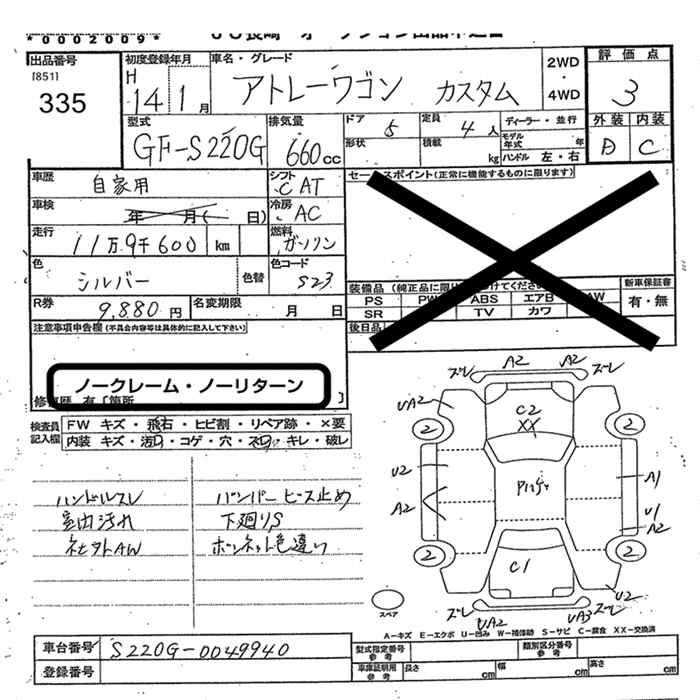 *0002009*
出品番号 初度登録年月 車名・グレード 2WD ・ 4WD 評価点
[851] H 14 1月 アトレーワゴン カスタム 3
335
型式 排気量 ドア 定員 ディーラー・並行 外装 内装
GF-S220G 660cc 5 4人 モデル年式 年 D C
形状 積載 kg ハンドル 左・右
車歴 自家用 シフト CAT セールスポイント(正常に機能するものに限ります)
車検 年 月( 日) 冷房 AC
走行 11万9千600 km 燃料 ガソリン
色 シルバー 色替 色コード S23
装備品 (純正品に限り
新車保証書
PS ABS エアB AW 有・無
SR TV カワ
R券 9,880円 名変期限 月 日 後日品
注意事項申告欄(不具合内容等は具体的に記入して下さい)
ノークレーム・ノーリターン
検査員記入欄 FW キズ・飛石・ヒビ割・リペア跡・×要
内装 キズ・汚れ・コゲ・穴・ネジ穴・キレ・破レ
ハンドルスレ バンパービス止め
室内汚れ 下廻りS
社外AW ボンネット色違い
ズレ A2 A2 ズレ
UA2 A2
2 C2 2
XX
U2 A1
A2 U1
A2
2 C1 2
U2
ズレ UA2 UA3 ズレ
スペア
A-キズ E-エクボ U-凹み W-補修跡 S-サビ C-腐食 XX-交換済
車台番号 S220G-0049940 型式指定番号 参考 類別区分番号 参考
登録番号 車庫証明用 参考 長さ cm 幅 cm 高さ cm